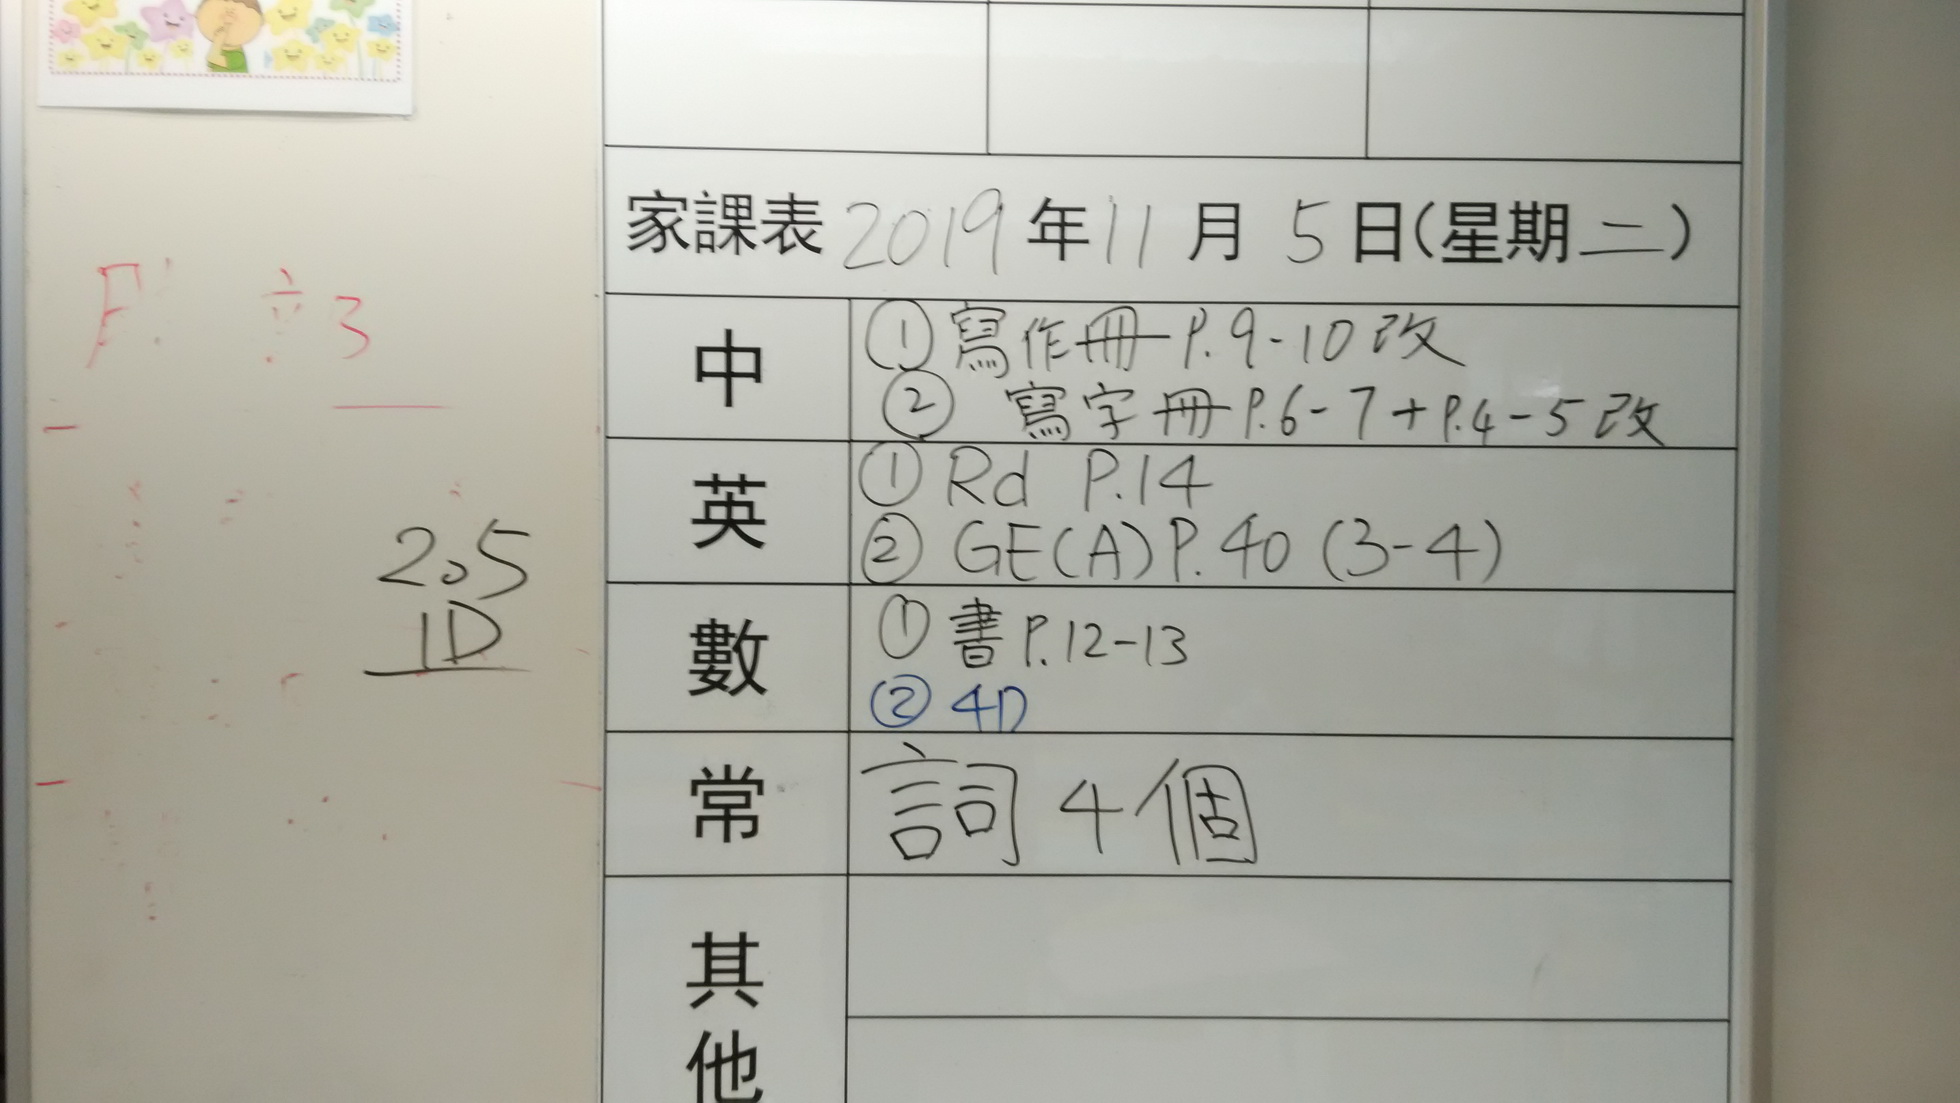 家課表 2019 年 11 月 5 日(星期二)
中
①寫作冊 P.9-10 改
② 寫字冊 P.6-7+P.4-5 改
英
① Rd P.14
② GE(A) P.40 (3-4)
數
① 書 P.12-13
② 4D
常
詞 4 個
其
他
3
2.5
1D